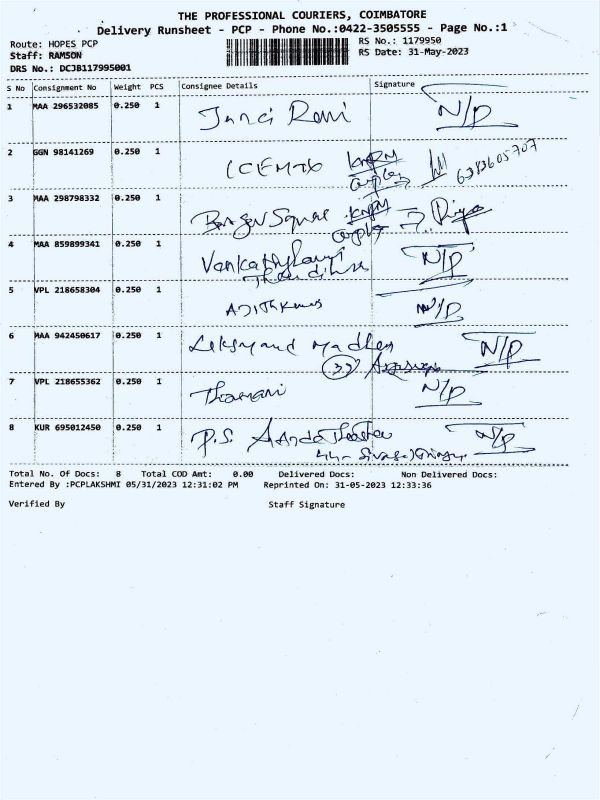 THE PROFESSIONAL COURIERS, COIMBATORE
Delivery Runsheet - PCP - Phone No.:0422-3505555 - Page No.:1
Route: HOPES PCP
RS No.: 1179950
Staff: RAMSON
RS Date: 31-May-2023
DRS No.: DCJB117995001
S No Consignment No Weight PCS Consignee Details Signature
1 MAA 296532085 0.250 1 Rani N/P
2 GGN 98141269 0.250 1 6383605707
3 MAA 298798332 0.250 1 Square Priya
4 MAA 859899341 0.250 1 N/P
5 VPL 218658304 0.250 1 N/P
6 MAA 942450617 0.250 1 N/P
7 VPL 218655362 0.250 1 N/P
8 KUR 695012450 0.250 1 P.S. N/P
Total No. Of Docs: 8 Total COD Amt: 0.00 Delivered Docs: Non Delivered Docs:
Entered By :PCPLAKSHMI 05/31/2023 12:31:02 PM Reprinted On: 31-05-2023 12:33:36
Verified By Staff Signature